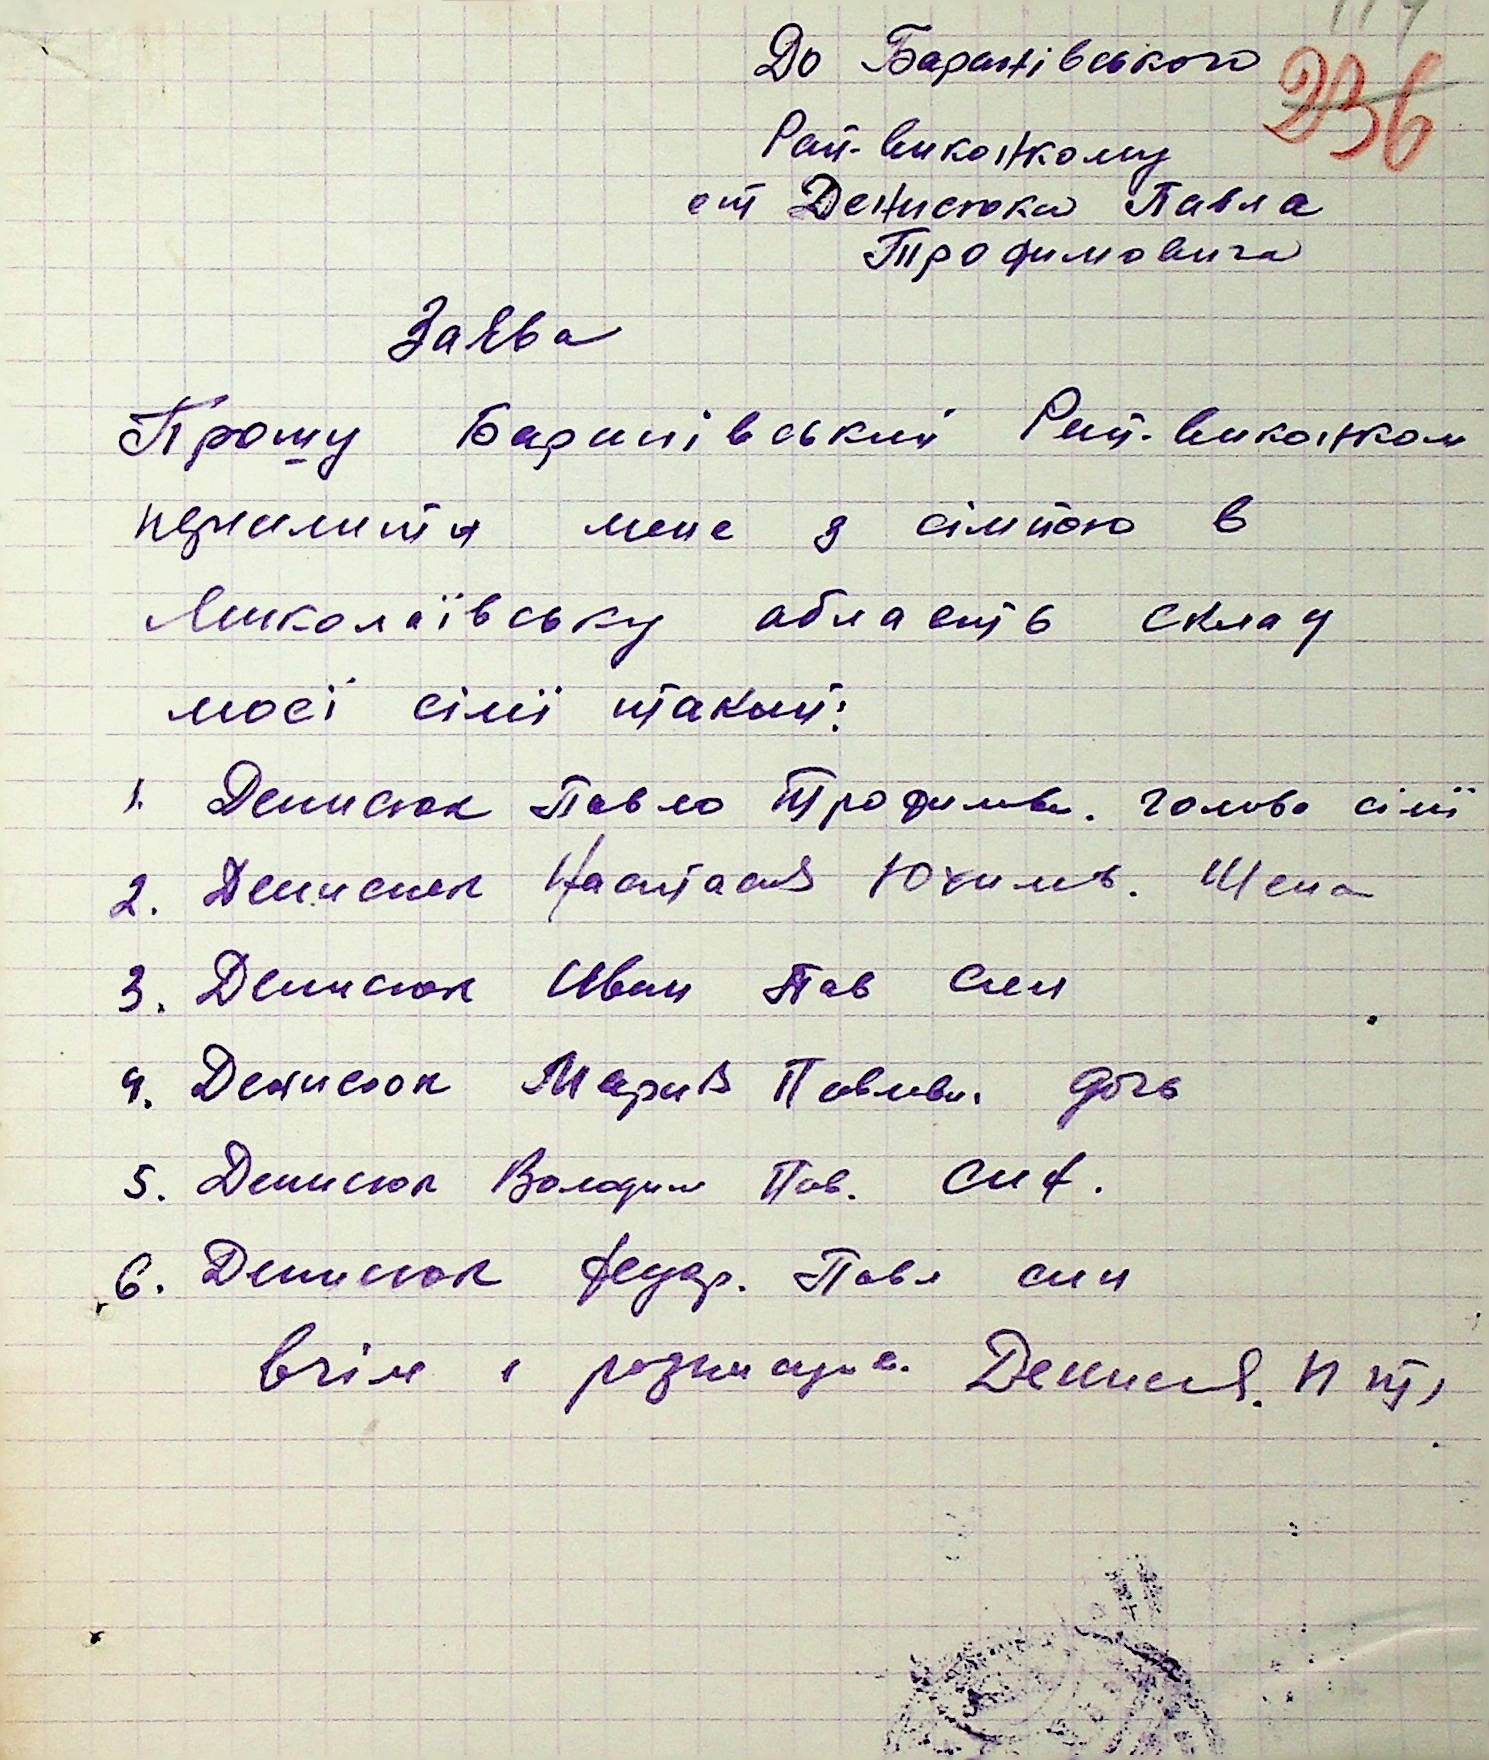 236
До Баранівського
Рай-виконкому
от Денисюка Павла
Трофимовича
Заява
Прошу Баранівський Рай-виконком
мене з сімйою в
Миколаївську область склад
моєї сімї такий:
1. Денисюк Павло Трофимов. голова сімї
2. Денисюк Настасія Юхимів. Щена
3. Денисюк Иван Пав син
4. Денисюк Мария Павлівн. дочь
5. Денисюк Володим Пав. син.
6. Денисюк Федор. Павл син
вчім і Денисюк. П Т,